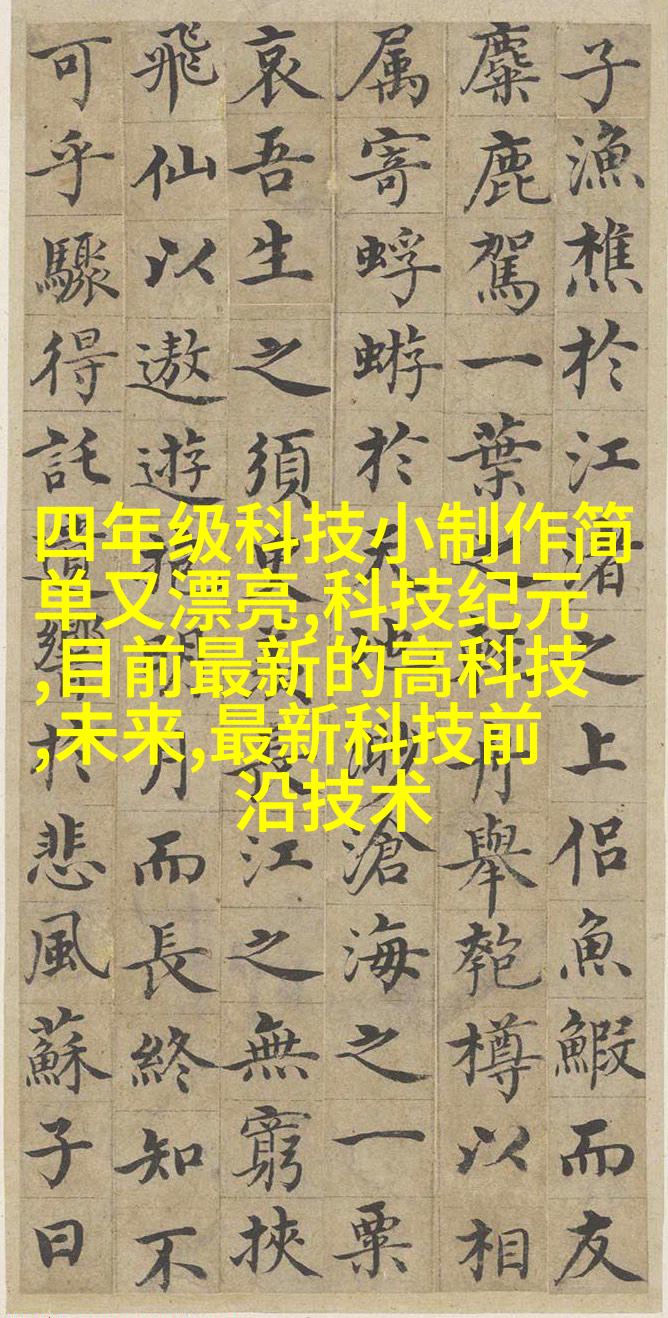 子漁樵於江渚之上侣魚鰕而友
麋鹿駕一葉之扁舟舉匏樽以相
属寄蜉蝣於天地渺滄海之一粟
哀吾生之須臾羨長江之無窮挾
飛仙以遨遊抱明月而長終知不
可乎驟得託遺響於悲風蘇子曰
四年级科技小制作简
单又漂亮,科技纪元
,目前最新的高科技
,未来,最新科技前
沿技术